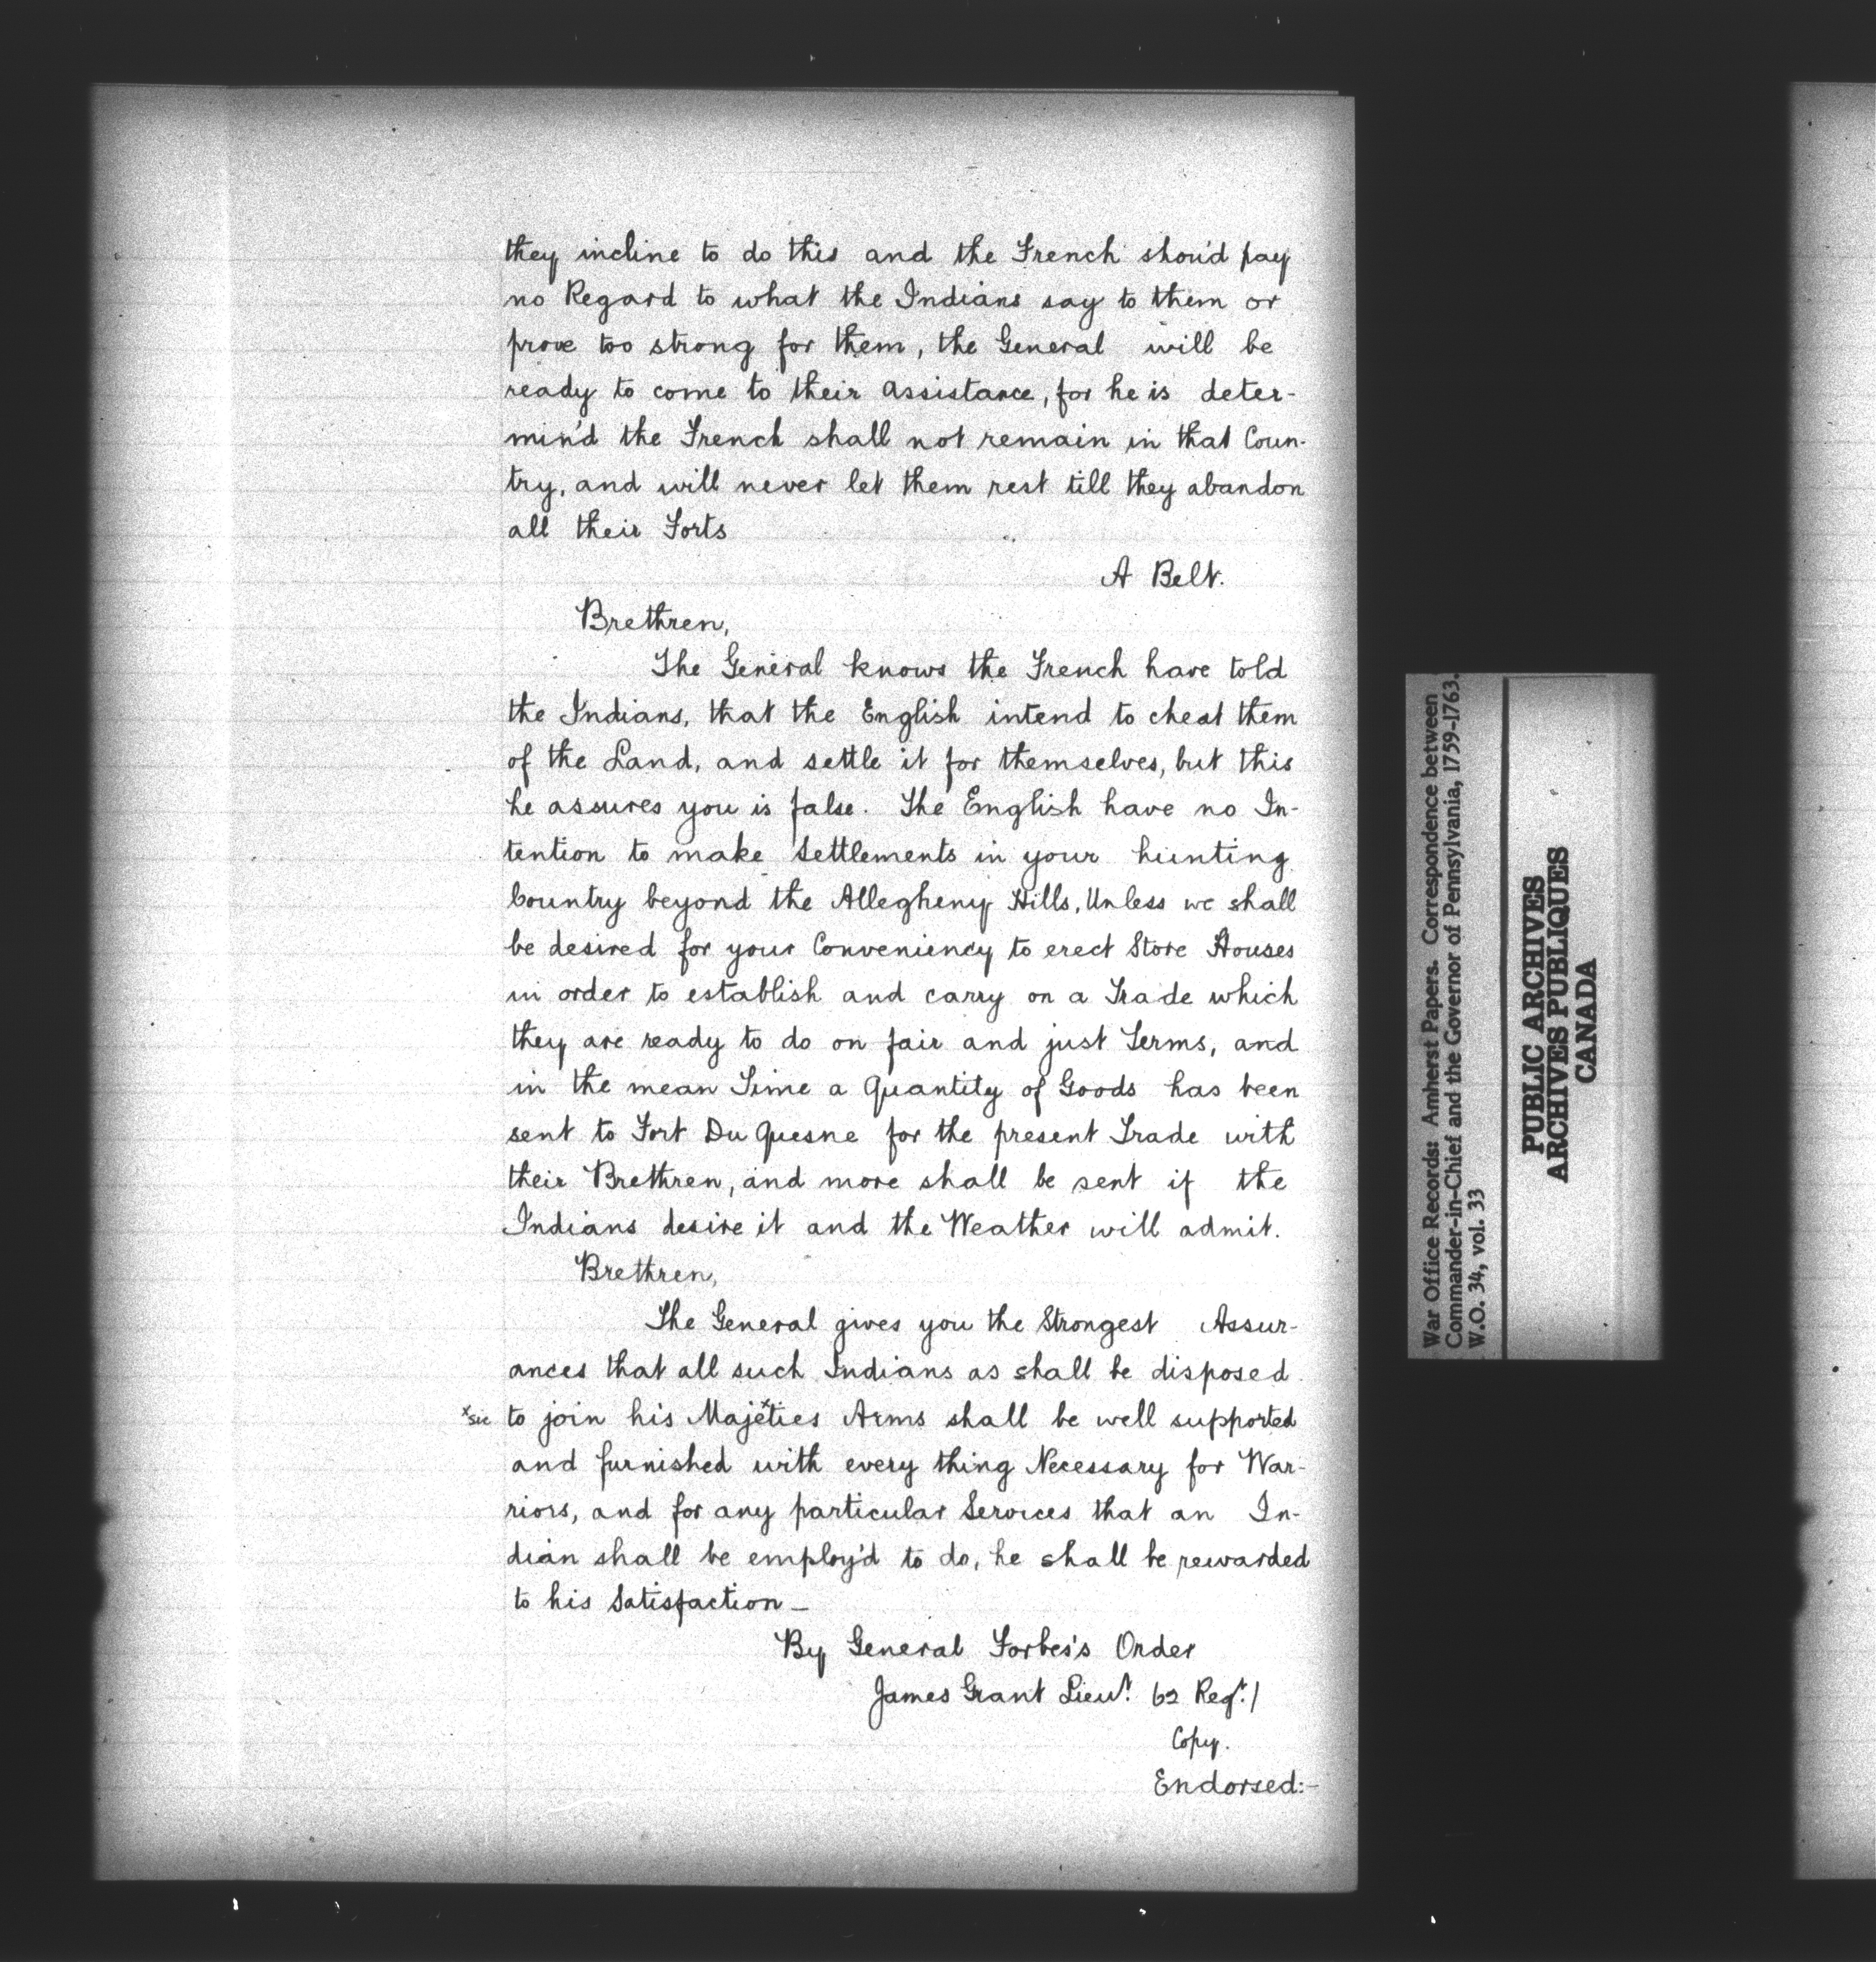 they incline to do this and the French shou'd pay
no Regard to what the Indians say to them or
prove too strong for them, the General will be
ready to come to their assistance, for he is deter-
min'd the French shall not remain in that Coun-
try, and will never let them rest till they abandon
all their Forts
A Belt.
Brethren,
The General knows the French have told
the Indians, that the English intend to cheat them
of the Land, and settle it for themselves, but this
he assures you is false. The English have no In-
tention to make Settlements in your hunting
Country beyond the Allegheny Hills, Unless we shall
be desired for your Conveniency to erect Store Houses
in order to establish and carry on a Trade which
they are ready to do on fair and just Terms, and
in the mean Time a Quantity of Goods has been
sent to Fort Du Quesne for the present Trade with
their Brethren, and more shall be sent if the
Indians desire it and the Weather will admit.
Brethren,
The General gives you the Strongest Assur-
ances that all such Indians as shall be disposed
x sic to join his Majeties x Arms shall be well supported
and furnished with every thing Necessary for War-
riors, and for any particular Services that an In-
dian shall be employ'd to do, he shall be rewarded
to his Satisfaction _
By General Forbes's Order
James Grant Lieut. 62 Regt. /
Copy.
Endorsed:-
War Office Records: Amherst Papers. Correspondence between
Commander-in-Chief and the Governor of Pennsylvania, 1759-1763.
W.O. 34, vol. 33
PUBLIC ARCHIVES
ARCHIVES PUBLIQUES
CANADA